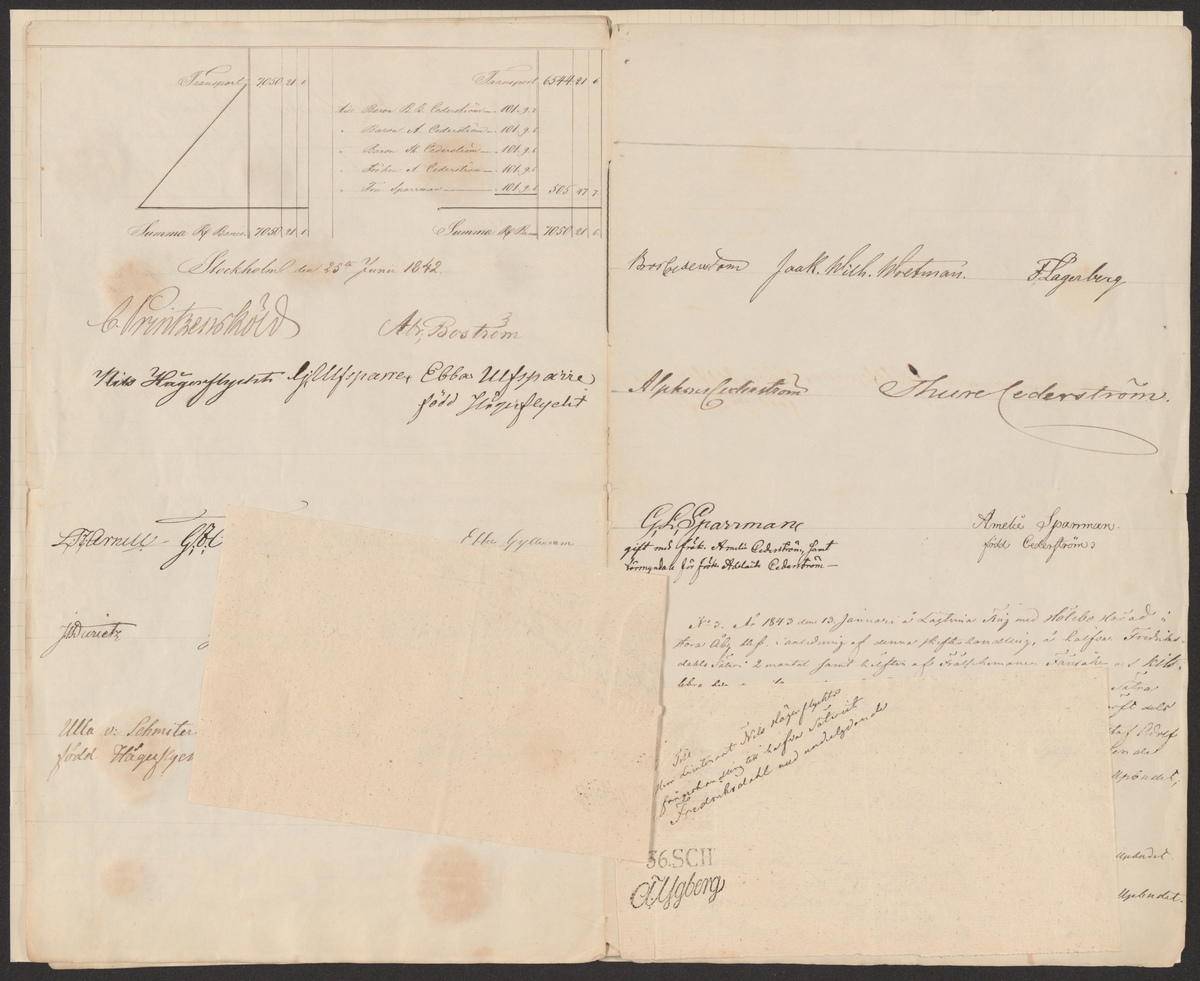 Transport 7050 21 6
Transport 6544 21 6
Baron B. C. Cederström 101.9.
Baron A. Cederström 101.9.6
Baron Th. Cederström 101.9.6
Fröken A. Cederström 101.9.6
Fru Sparrman 101.9.6 505 47 7
Summa Rf Banco 7050 21 6
Summa Rf 7050 21 6
Stockholm den 25te Juni 1842.
C. Printzensköld
Boström
Nils Hägerflycht
Ulfsparre
Ebba Ulfsparre
född Hägerflycht
Ebba Gyllenram
Ulla v: Schmiter
född Hägerflych
Jaak. Wilh. Woetman.
F Lagerberg
Alphons Cederström
Thure Cederström.
G. L. Sparrman
gift med frök. Amelie Cederström, samt
förmyndare för frök. Adelaide Cederström
Amelie Sparrman.
född Cederström
No 3. År 1843 den 13 Januari å Lagtima Ting med Hölebo Härad i
Stora Åby i anledning af denna skifteshandling, å halfva Fredriks-
dahls Säteri 2 mantal samt hälften af Frälsehemmanen
Sätra
Adolf
Till
Herr Lieutenant Nils Hägerflychts
fångeshandling till halfva Säteriet
Fredriksdahl med underlydande
36.SCII
A. Ygberg
Upbudet.
Upbudet.